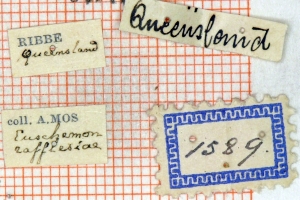 Queensland
RIBBE
Queensland
coll. A.MOS
Euschemon
rafflesiae
1589.